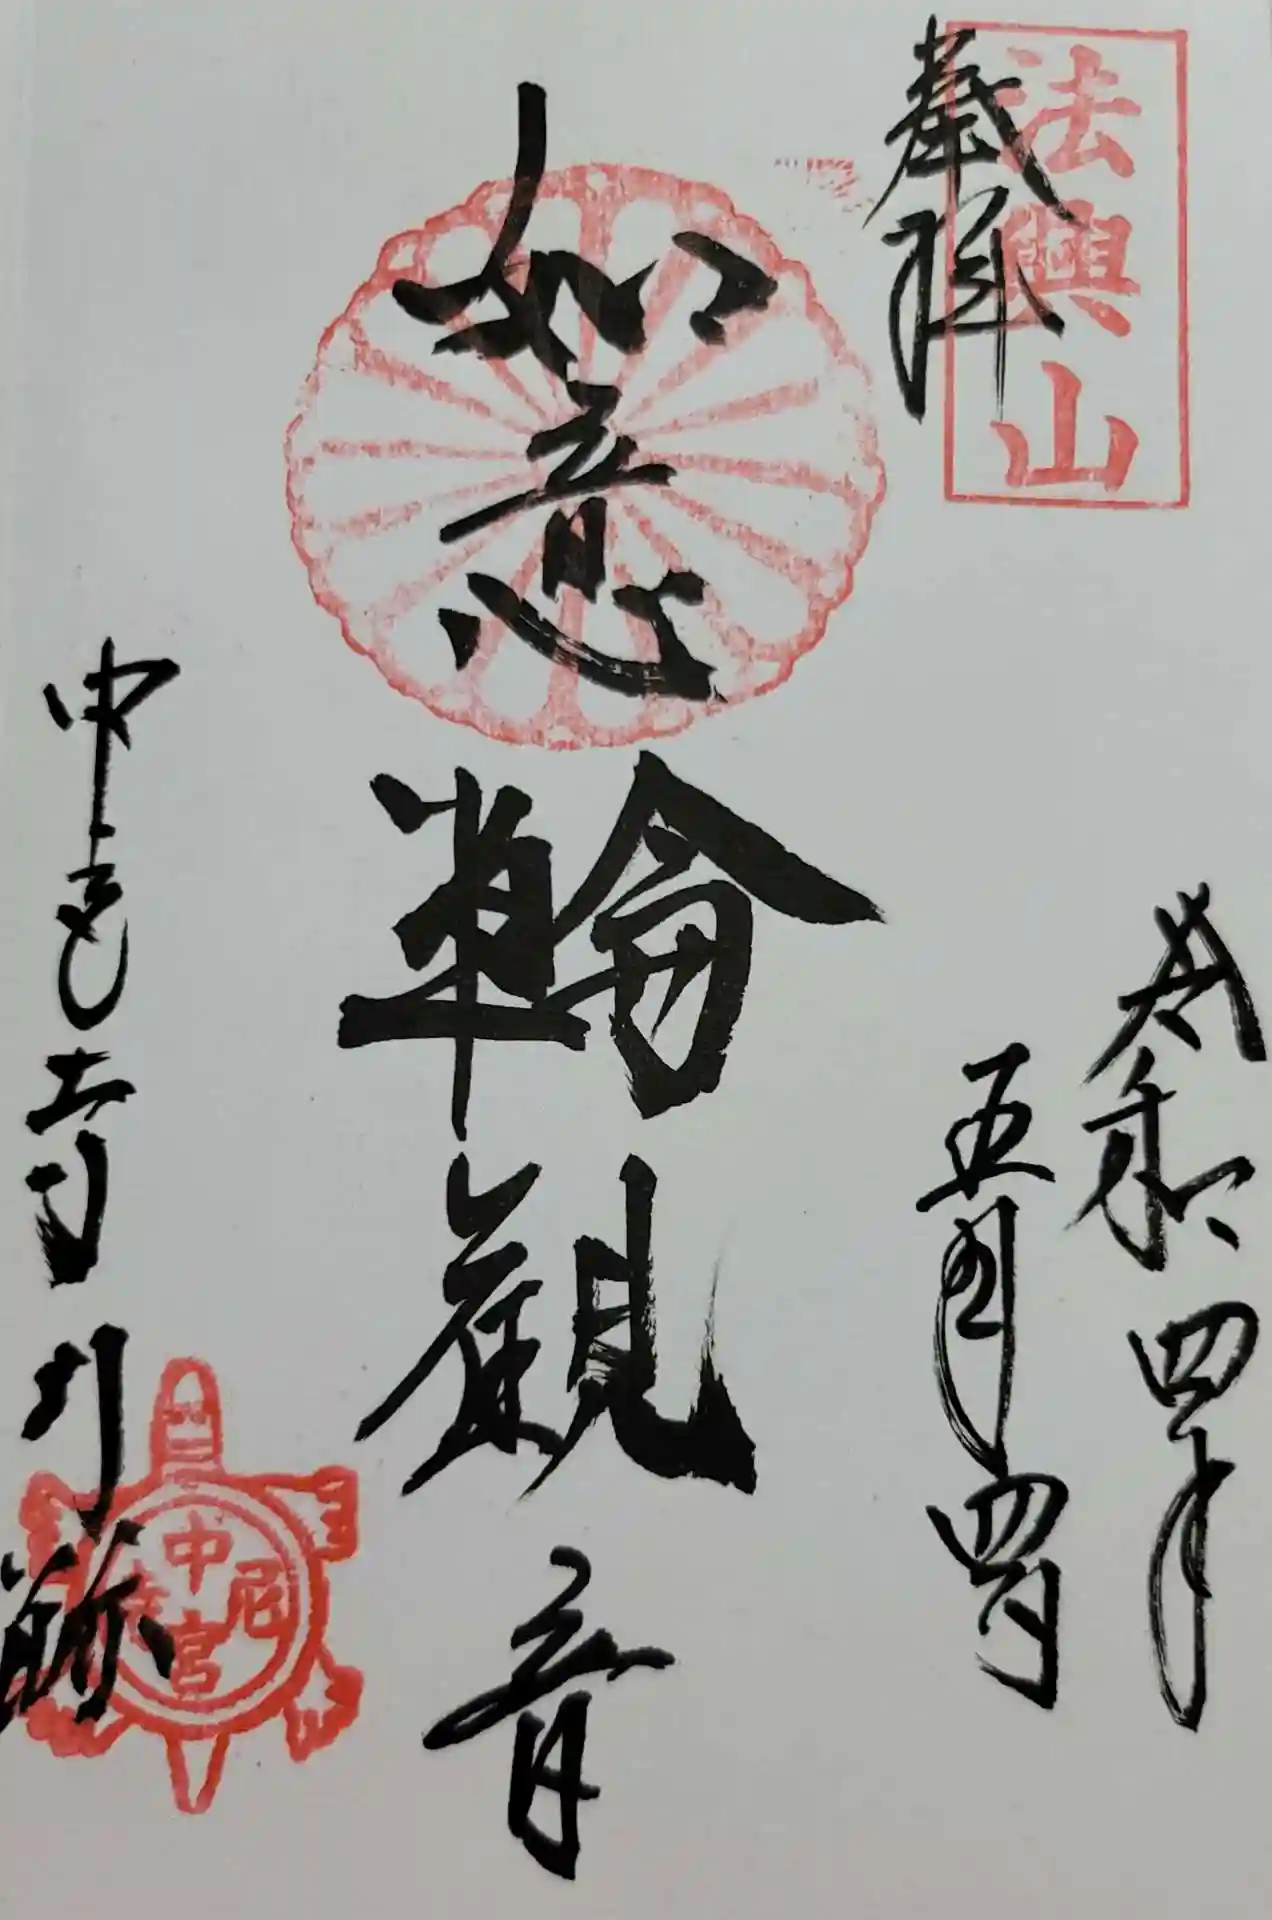 奉拝
法興山
令和四年
五月四日
如意輪観音
中宮寺門跡
中宮
尼